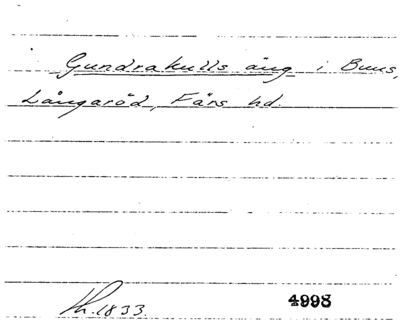 Gundrakulls äng i Buus,
Långaröd, Färs hd.
Lh. 1833.
4998